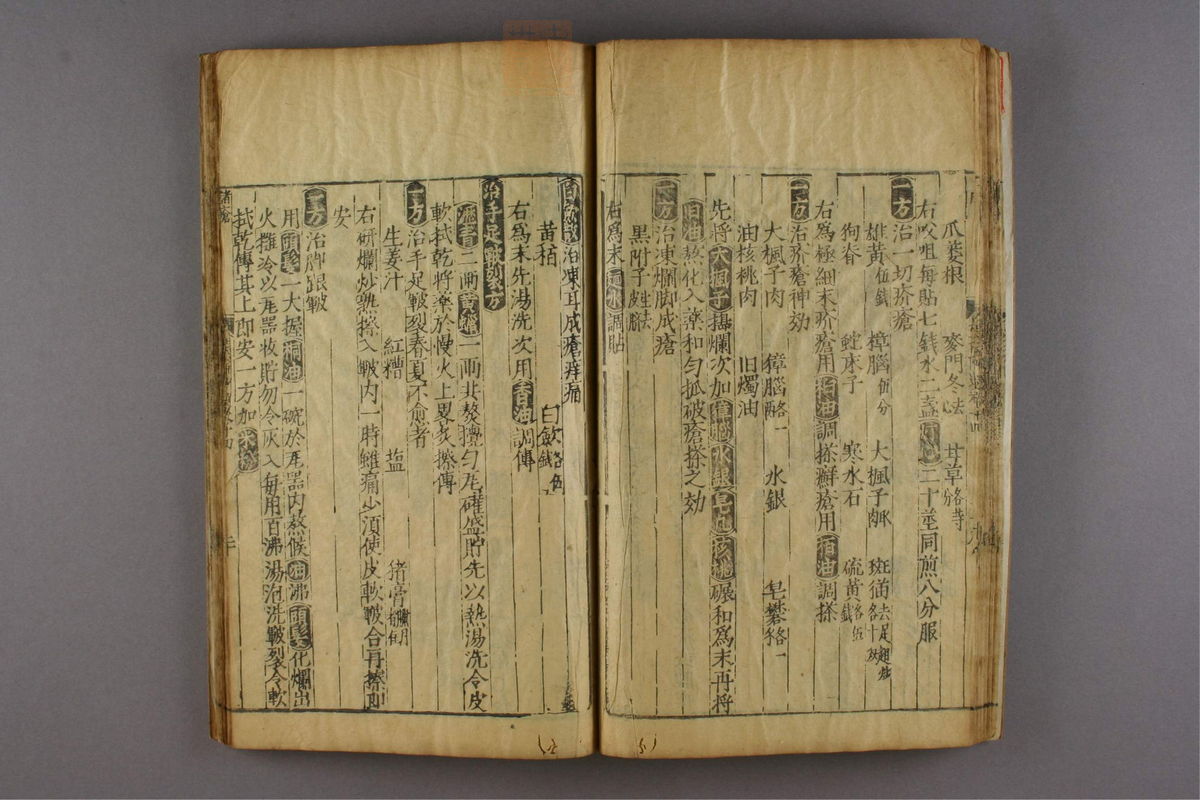 瓜蔞根 麥門冬去心 甘草各等分
右㕮咀每貼七錢水二盞二十莖同煎八分服
一方治一切疥瘡
雄黃伍錢 樟腦伍分 大楓子 斑猫去足翅炒各十枚
狗脊 蛇床子 寒水石 硫黃各伍錢
右爲極細末疥瘡用柏油調搽癬瘡用柏油調搽
一方治疥瘡神効
大楓子肉 獐腦 水銀 皂礬
油核桃肉 旧燭油
先將大楓子搗爛次加獐腦水銀皂礬核桃碾和爲末再将
旧油熬化入藥和匀抓破瘡搽之効
一方治凍爛脚成瘡
黑附子去皮臍
右爲末麺水調貼
白歛散治凍耳成瘡痒痛
黃栢 白歛各伍錢
右爲末先湯洗次用香油調傅
治手足皸裂方
瀝青二兩黃蠟二兩共熬攪匀瓦確盛貯先以熱湯洗令皮
軟拭乾將藥於慢火上畧炙搽傅
一方治手足皸裂春夏不愈者
生姜汁 紅糟 塩 猪膏臘月
右研爛炒熱搽入皸内一時雖痛少湏使皮軟皸合再搽即
安
一方治脚跟皸
用頭髮一大握桐油一碗於瓦器内熬候油沸頭髮化爛出
火攤冷以瓦器收貯勿令灰入每用百沸湯泡洗皸裂令軟
拭乾傅其上即安一方加
諸瘡